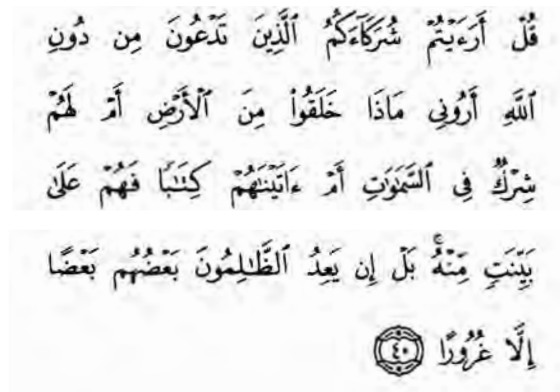 قُلْ أَرَءَيْتُمْ شُرَكَآءَكُمُ ٱلَّذِينَ تَدْعُونَ مِن دُونِ
ٱللَّهِ أَرُونِى مَاذَا خَلَقُوا۟ مِنَ ٱلْأَرْضِ أَمْ لَهُمْ
شِرْكٌ فِى ٱلسَّمَٰوَٰتِ أَمْ ءَاتَيْنَٰهُمْ كِتَٰبًا فَهُمْ عَلَىٰ
بَيِّنَتٍ مِّنْهُ ۚ بَلْ إِن يَعِدُ ٱلظَّٰلِمُونَ بَعْضُهُم بَعْضًا
إِلَّا غُرُورًا ٤٠